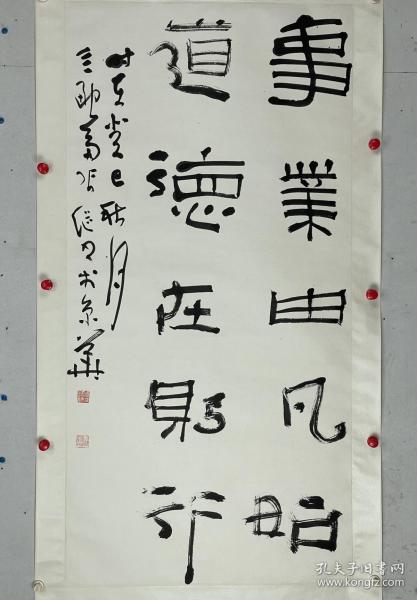 事業由凡始
道德在躬行
时在癸巳秋月
於京華
孔夫子旧书网
www.kongfz.com